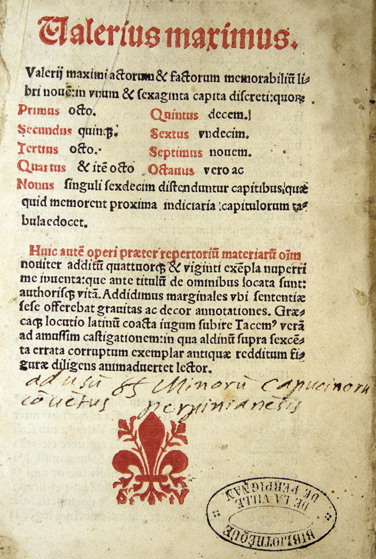 Valerius maximus.
Valerij maximi actorum & factorum memorabiliū li-
bri nouē: in vnum & sexaginta capita discreti: quoꝝ
Primus octo. Quintus decem.
Secundus quinqꝫ. Sextus vndecim.
Tertius octo. Septimus nouem.
Quartus & itē octo Octauus vero ac
Nonus singuli sexdecim distenduntur capitibus, quæ
quid memorent proxima indiciaria capitulorum ta-
bula edocet.
Huic autē operi præter repertoriū materiarū oīm
nouiter additū quattuorqꝫ & viginti exēpla nuperri
me inuenta: que ante titulū de ominibus locata sunt:
authorisqꝫ vitā. Addidimus marginales vbi sententiæ
sese offerebat grauitas ac decor annotationes. Græ-
caqꝫ locutio latinū coacta iugum subire Tacem⁹ verā
ad amussim castigationem: in qua aldinū supra sexcē-
ta errata corruptum exemplar antiquæ redditum fi-
guræ diligens animaduertet lector.
ad usū ff Minorū capucinorū
cōuetus perpinianēsis
BIBLIOTHÈQUE
DE LA VILLE
DE PERPIGNAN